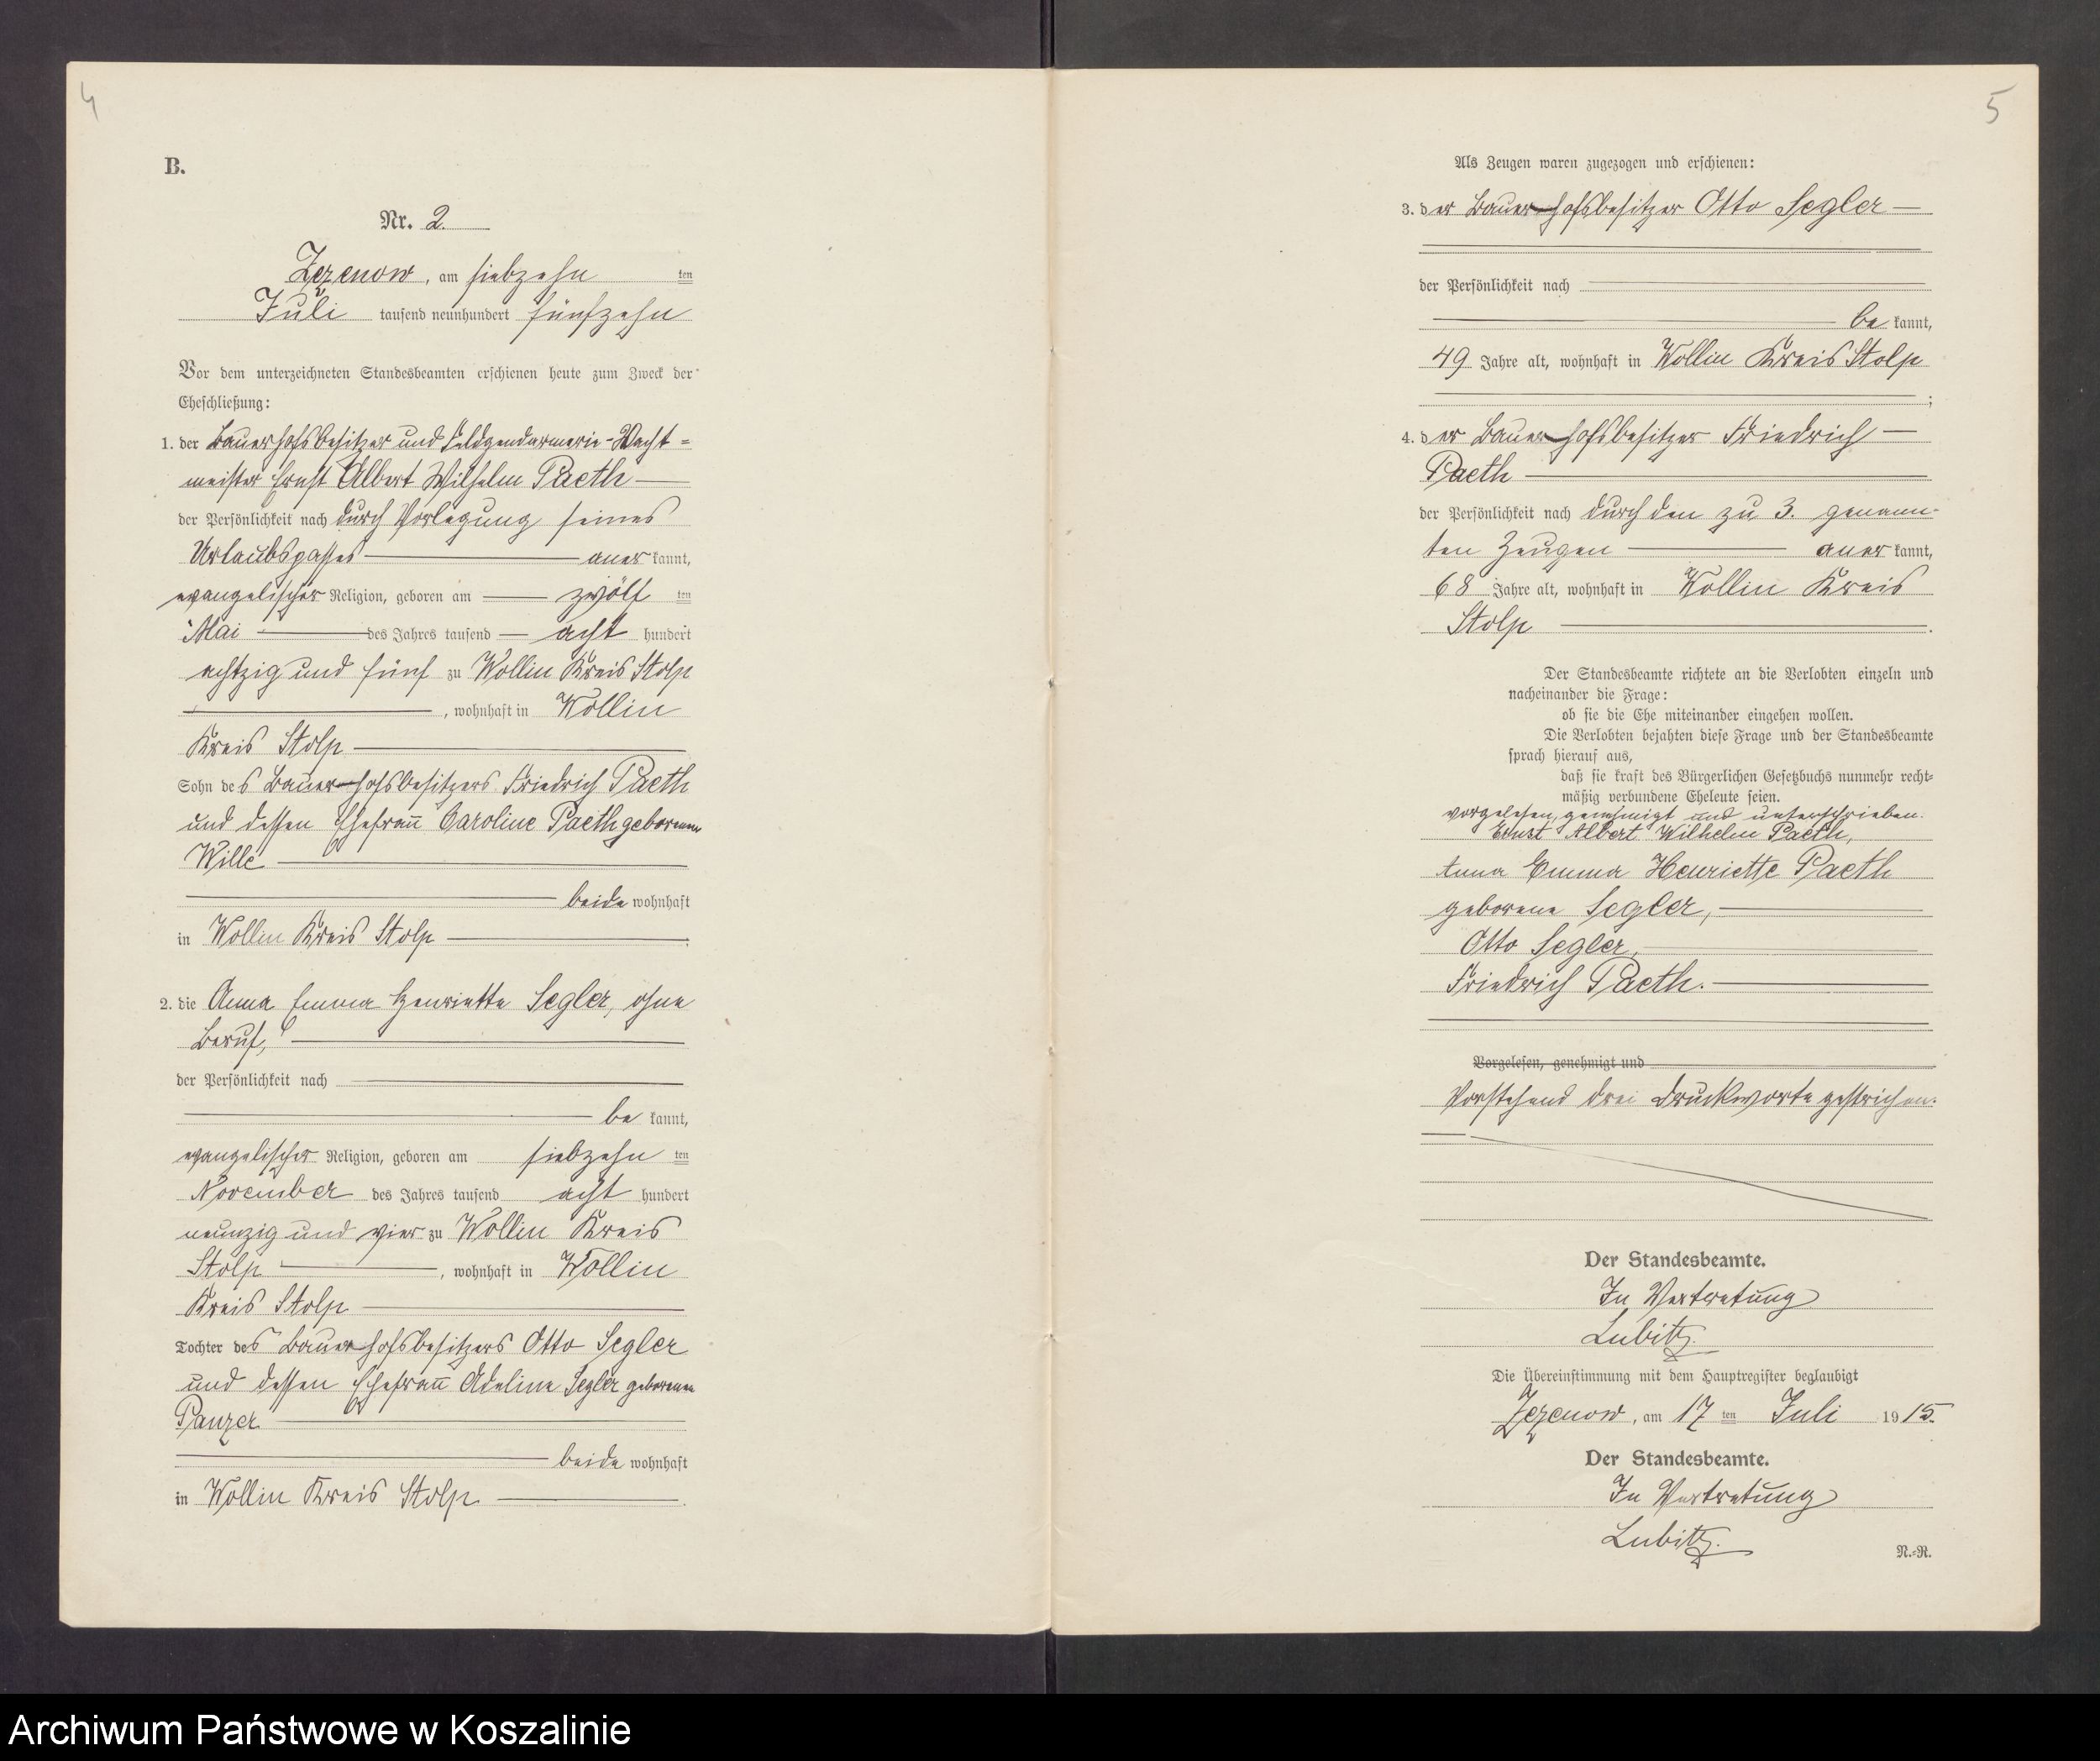 4
B.
Nr. 2.
Zezenow, am siebzehn ten
Juli tausend neunhundert fünfzehn
Vor dem unterzeichneten Standesbeamten erschienen heute zum Zweck der
Eheschließung:
1. der Bauerhofsbesitzer und Feldgendarmerie-Wacht=
meister Ernst Albert Wilhelm Paeth
der Persönlichkeit nach durch Vorlegung seines
Urlaubspasses anerkannt,
evangelischer Religion, geboren am zwölf ten
Mai des Jahres tausend acht hundert
achtzig und fünf zu Wollin Kreis Stolp
, wohnhaft in Wollin
Kreis Stolp
Sohn des Bauerhofsbesitzers Friedrich Paeth
und dessen Ehefrau Caroline Paeth geborenen
Wille
beide wohnhaft
in Wollin Kreis Stolp.
2. die Anna Emma Henriette Segler, ohne
Beruf,
der Persönlichkeit nach
bekannt,
evangelischer Religion, geboren am siebzehn ten
November des Jahres tausend acht hundert
neunzig und vier zu Wollin Kreis
Stolp, wohnhaft in Wollin
Kreis Stolp
Tochter des Bauerhofsbesitzers Otto Segler
und dessen Ehefrau Adeline Segler geborenen
Panzer
beide wohnhaft
in Wollin Kreis Stolp.
5
Als Zeugen waren zugezogen und erschienen:
3. der Bauerhofsbesitzer Otto Segler
der Persönlichkeit nach
bekannt,
49 Jahre alt, wohnhaft in Wollin Kreis Stolp
;
4. der Bauerhofsbesitzer Friedrich
Paeth
der Persönlichkeit nach durch den zu 3. genann-
ten Zeugen anerkannt,
68 Jahre alt, wohnhaft in Wollin Kreis
Stolp.
Der Standesbeamte richtete an die Verlobten einzeln und
nacheinander die Frage:
ob sie die Ehe miteinander eingehen wollen.
Die Verlobten bejahten diese Frage und der Standesbeamte
sprach hierauf aus,
daß sie kraft des Bürgerlichen Gesetzbuchs nunmehr recht=
mäßig verbundene Eheleute seien.
vorgelesen, genehmigt und unterschrieben.
Ernst Albert Wilhelm Paeth,
Anna Emma Henriette Paeth
geborene Segler,
Otto Segler,
Friedrich Paeth.
Vorgelesen, genehmigt und
Vorstehend drei Druckworte gestrichen.
Der Standesbeamte.
In Vertretung
Lubitz.
Die Übereinstimmung mit dem Hauptregister beglaubigt
Zezenow, am 17 ten Juli 1915.
Der Standesbeamte.
In Vertretung
Lubitz.
N.=R.
Archiwum Państwowe w Koszalinie